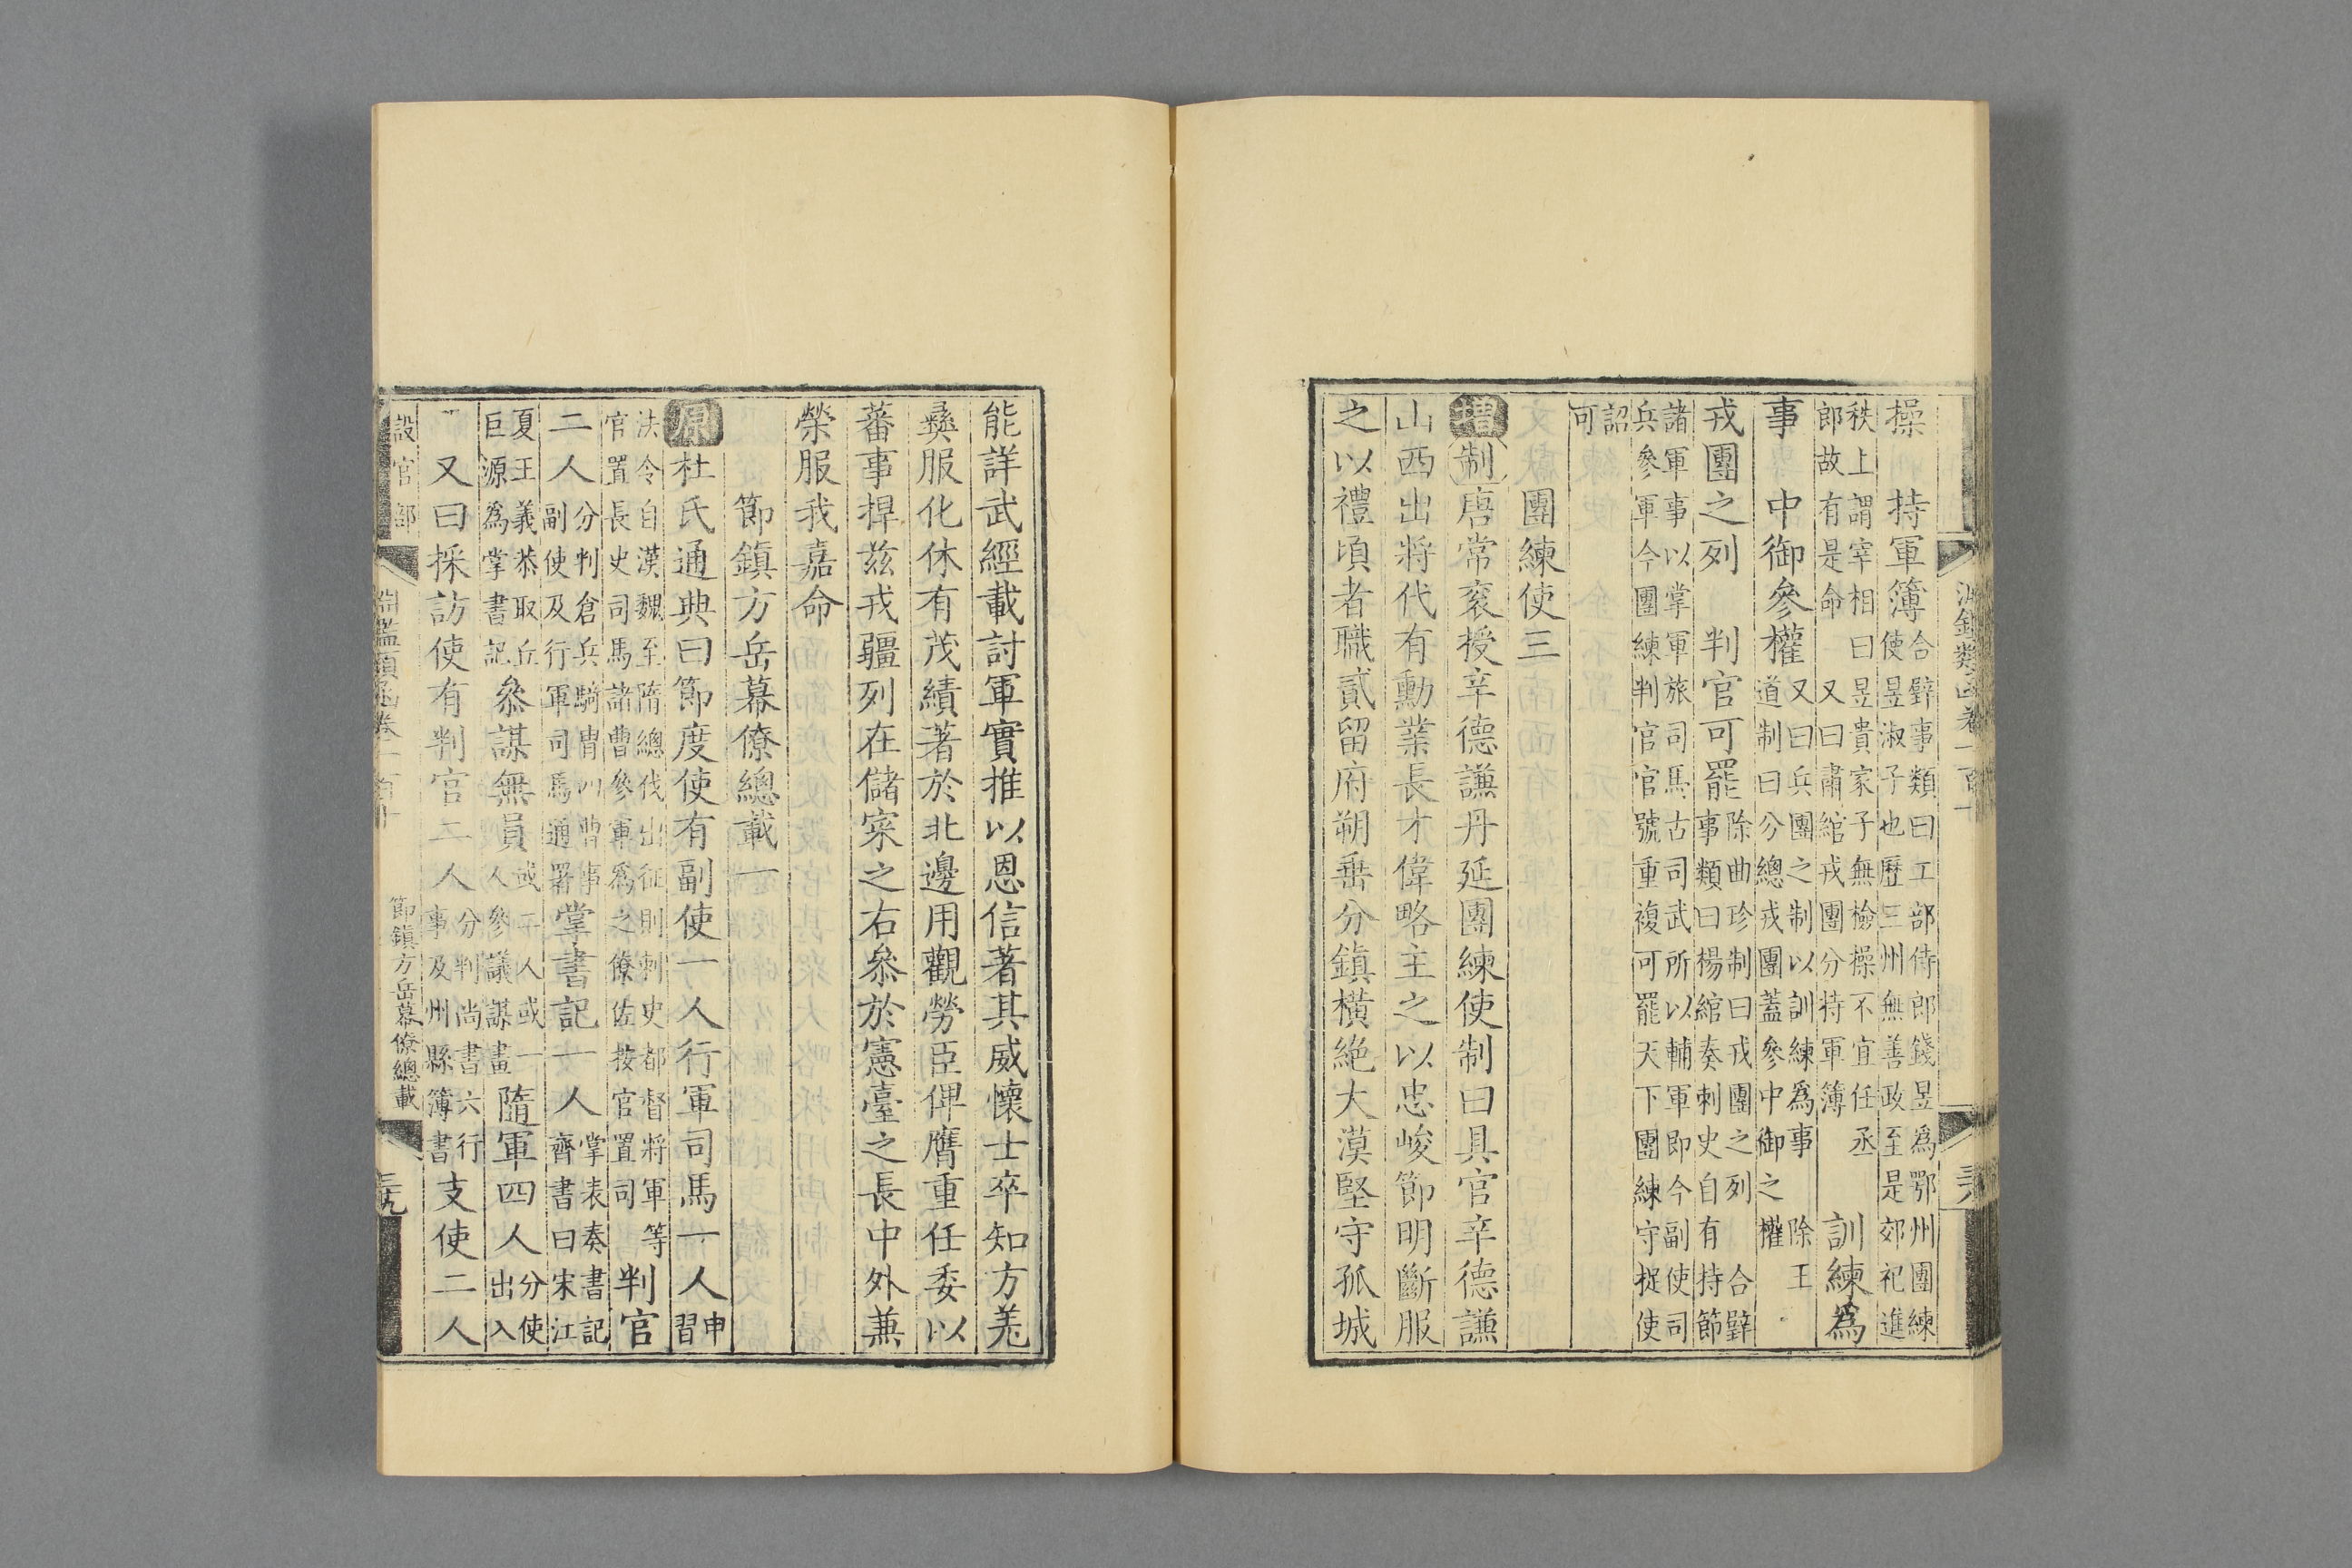 淵鑑類函卷一百十
操 持軍簿合璧事類曰工部侍郎錢昱爲鄂州團練使昱淑子也歷三州無善政至是郊祀進
秩上謂宰相曰昱貴家子無檢操不宜任丞郎故有是命 又曰肅綰戎團分持軍簿 訓練爲
事 中御參權又曰兵團之制以訓練爲事 除王道制曰分總戎團蓋參中御之權
戎團之列 判官可罷除曲珍制曰戎團之列 合璧事類曰楊綰奏刺史自有持節
諸軍事以掌軍旅司馬古司武所以輔軍即今副使司兵參軍今團練判官官號重複可罷天下團練守捉使
詔可
團練使三
增制唐常袞授辛德謙丹延團練使制曰具官辛德謙
山西出將代有勳業長才偉略主之以忠峻節明斷服
之以禮頃者職貳留府朔垂分鎮橫絶大漠堅守孤城
能詳武經載討軍實推以恩信著其威懷士卒知方羗
彜服化休有茂績著於北邊用觀勞臣俾膺重任委以
蕃事捍茲戎疆列在儲寀之右叅於憲臺之長中外兼
榮服我嘉命
節鎮方岳幕僚總載一
原杜氏通典曰節度使有副使一人行軍司馬一人申習
法令自漢魏至隋總伐出征則刺史都督將軍等官置長史司馬諸曹參軍爲之僚佐按官置司 判官
二人分判倉兵騎冑四曹事副使及行軍司馬通署掌書記一人掌表奏書記齊書曰宋江
夏王義恭取丘巨源爲掌書記叅謀無員或二人或一人參議謀畫隨軍四人分使出入
又曰採訪使有判官二人分判尚書六行事及州縣簿書支使二人
設官部
淵鑑類函卷一百十
節鎮方岳幕僚總載
三九